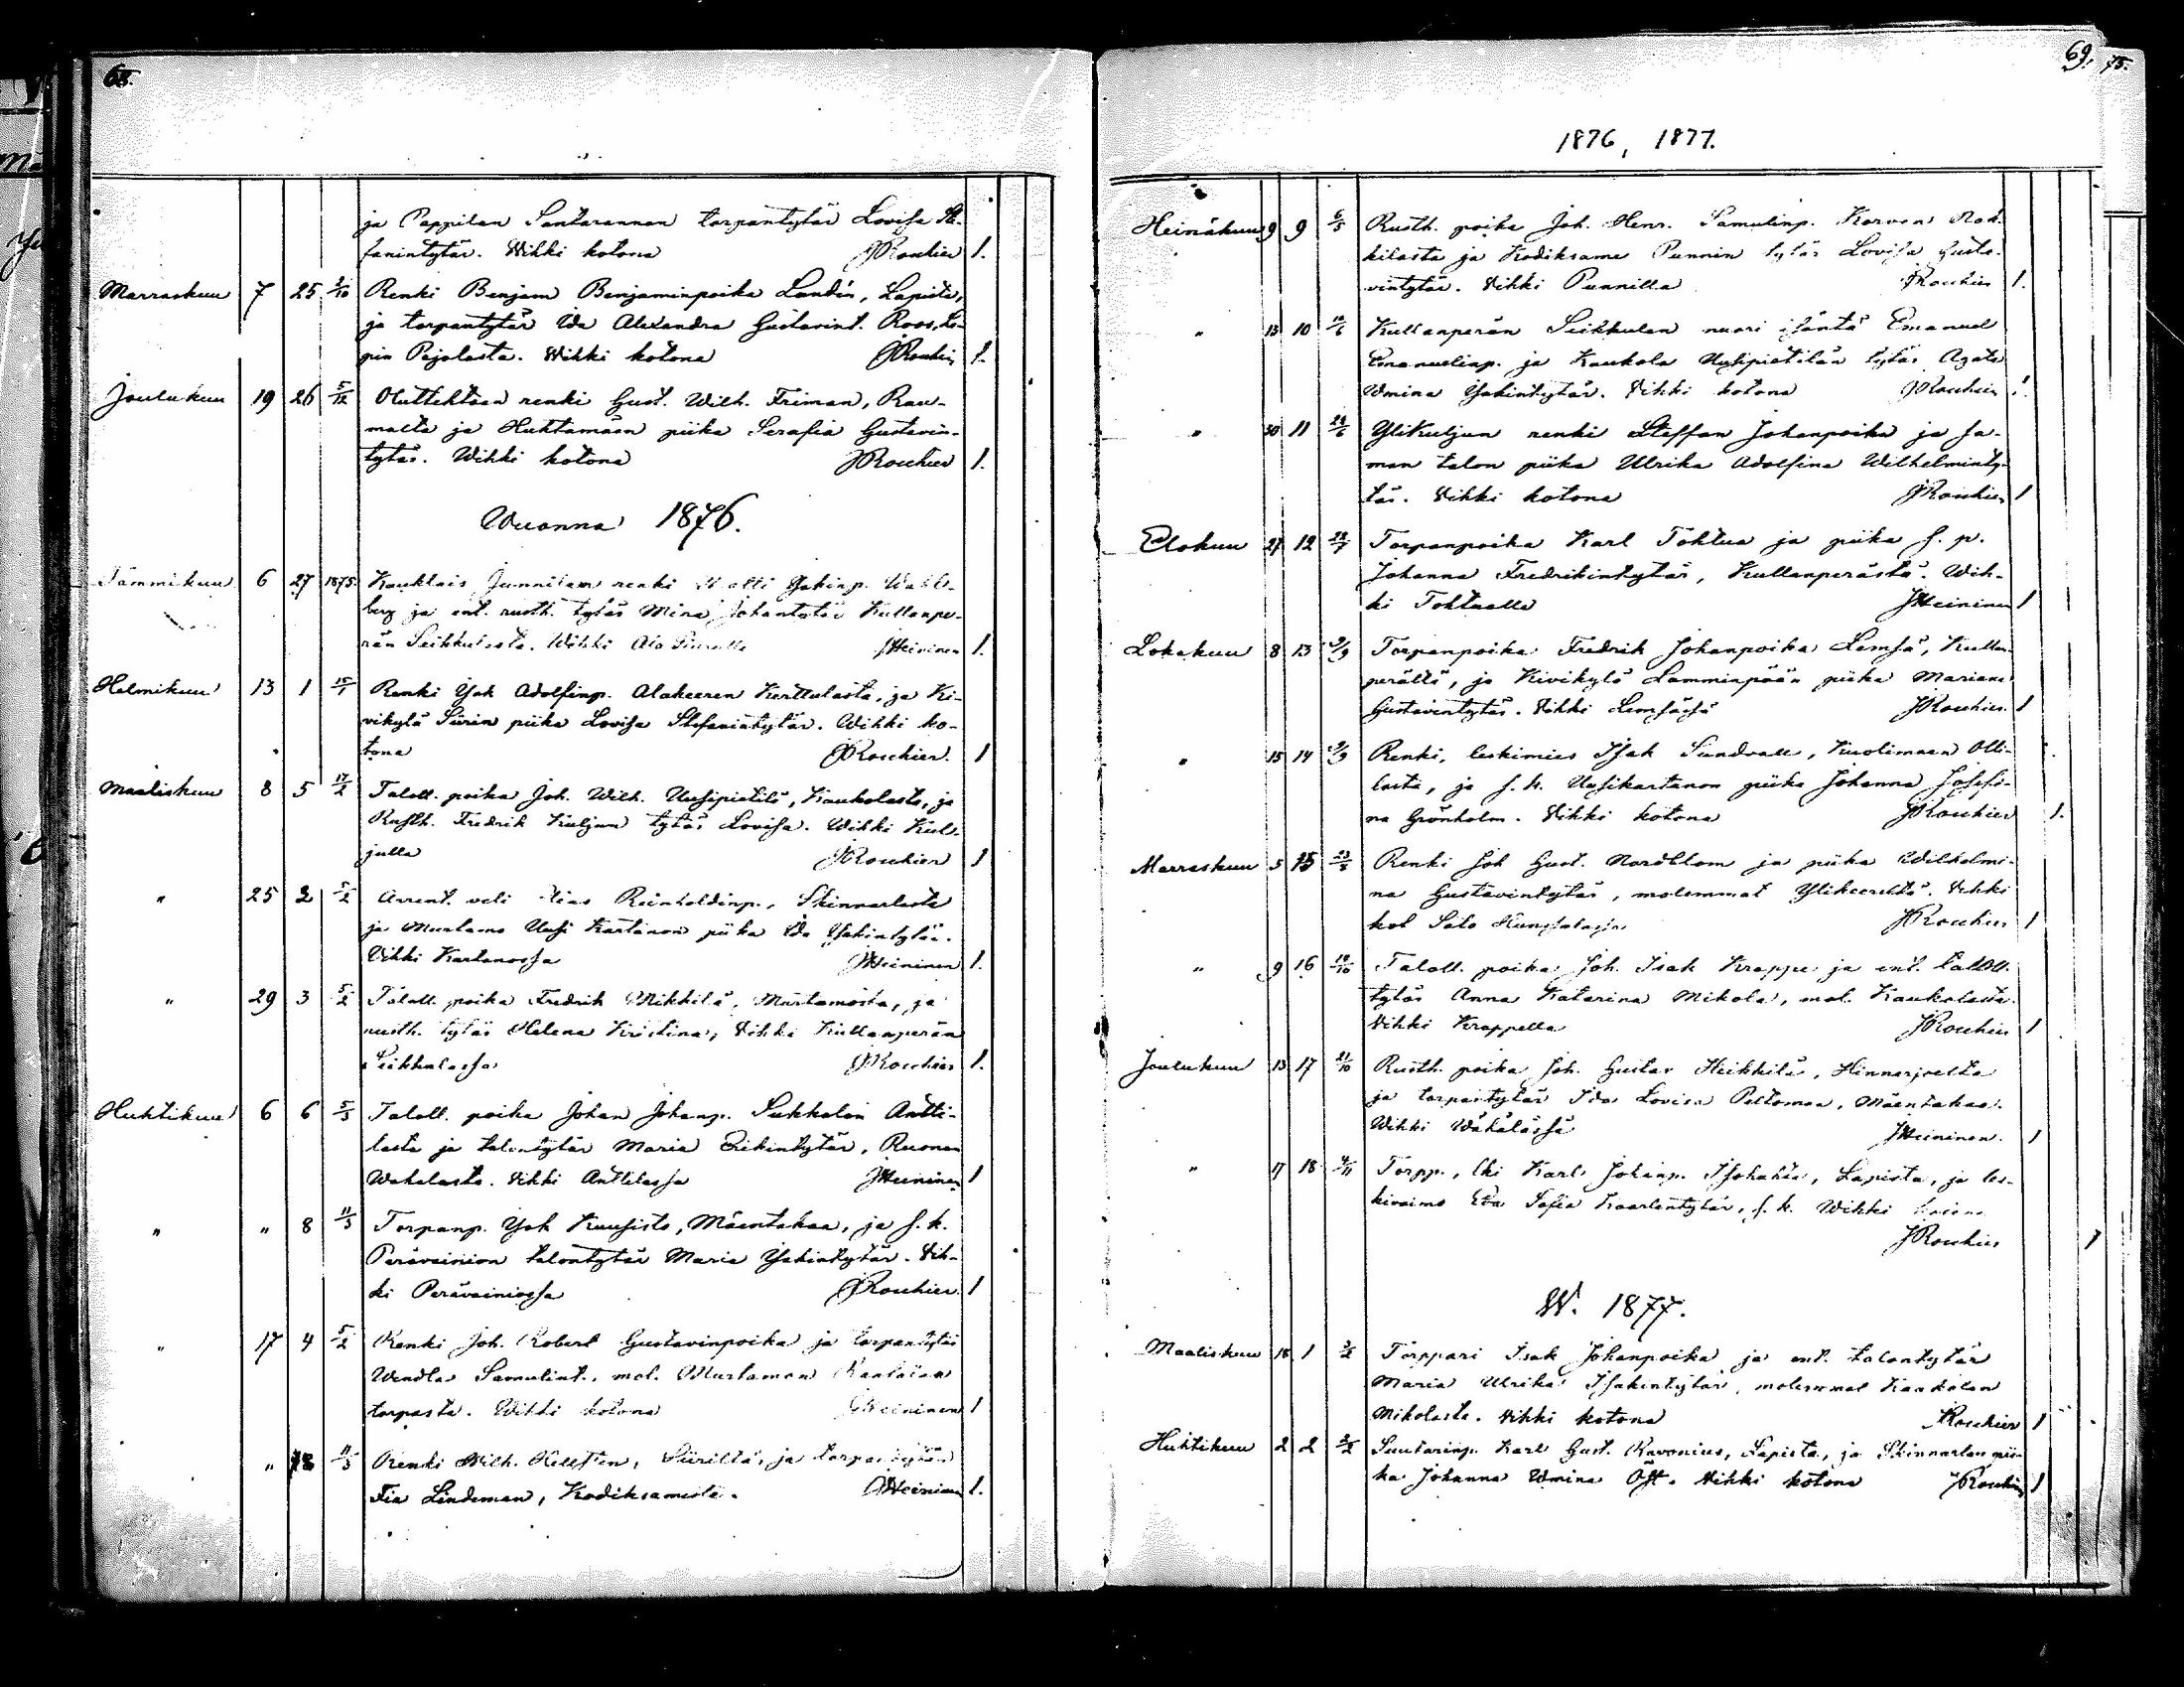 68.
ja Pappilan Santarannan torpantytär Lovisa Ste-
fanintytär. Wihki kotona JRoschier 1.
Marraskuu 7 25 Renki Benjam Benjaminpoika Lundén, Lapista,
ja torpantytär Ida Alexandra Gustavint. Roos, La-
pin Pajolasta. Wihki kotona JRoschier 1.
Joulukuu 19 26 5/12 Outtehtaan renki Gust. Wilh. Friman, Rau-
malta ja Huhtamaan piika Serafia Gustavin-
tytär. Wihki kotona JRoschier 1.
Wuonna 1876.
Tammikuu 6 27 1875 Kauklais Junnilan renki Matti Isakinp. Wahl-
berg ja ent. rusth. tytär Mina Johantytär Kullanpe-
rän Seikkulasta. Wihki JHeininen 1.
Helmikuu 13 1 15/1 Renki Isak Adolfinp. Alakeeren Kerttulasta, ja Ki-
vikylä Siirin piika Lovisa Stefanintytär. Wihki ko-
tona JRoschier. 1
Maaliskuu 8 5 17/2 Taloll. poika Joh. Wilh. Uusipietilä, Kaukolasta, ja
Rusth. Fredrik Kuljun tytär Lovisa. Wihki Kul-
julla JRoschier 1
" 25 2 5/2 Arrent. veli Elias Reinholdinp., Skinnarlasta
ja Murtamo Uusi Kartanon piika Ida Isakintytär.
Vihki Kartanossa JHeininen 1.
" 29 3 5/2 Taloll. poika Fredrik Mikkilä, Murtamosta, ja
rusth. tytär Helena Kristina, Vihki Kullanperän
Seikkulassa JRoschier 1.
Huhtikuu 6 6 5/3 Taloll. poika Johan Johanp. Sukkalan Antti-
lasta ja talontytär Maria Erikintytär, Ruonan
Wahalasta. Vihki Anttilassa JHeininen 1
" " 8 11/3 Torpanp. Isak Kuusisto, Mäentakaa, ja s. k.
Perävainion talontytär Maria Isakintytär. Vih-
ki Perävainiossa JRoschier. 1
" 17 4 5/2 Renki Joh. Robert Gustavinpoika ja torpantytär
Wendla Samulint., mol. Murtamon
torpasta. Wihki kotona JHeininen 1
" 11/3 Renki Wilh. Siiriltä, ja torpantytär
Fia Lindeman, Kodiksamista. JHeininen 1.
69. 75.
1876, 1877.
Heinäkuu 9 9 6/5 Rusth. poika Joh. Henr. Samulinp. Korven
kilasta ja Kodiksame Punnin tytär Lovisa Gusta-
vintytär. Vihki Punnilla JRoschier 1.
" 13 10 Kullanperän Seikkulan nuori isäntä Emanuel
Emanuelinp. ja Kaukola Uusipietilän tytär Agata
Wmina Isakintytär. Vihki kotona JRoschier 1.
" 30 11 Ylikuljun renki Steffan Johanpoika ja sa-
man talon piika Ulrika Adolfina Wilhelminty-
tär. Vihki kotona JRoschier 1
Elokuu 27 12 Torpanpoika Karl Tohtua ja piika s. p.
Johanna Fredrikintytär, Kullanperästä. Wih-
ki Tohtualla JHeininen 1
Lokakuu 8 13 Torpanpoika Fredrik Johanpoika Lemsä, Kullan-
perältä, ja Kivikylä Lamminpään piika Mariana
Gustavintytär. Vihki Lemsässä JRoschier. 1
" 15 14 Renki, leskimies Isak Sundvall, Kuolimaan Olli-
lasta, ja s. k. Uusikartanon piika Johanna Josefi-
na Grönholm. Vihki kotona JRoschier 1.
Marraskuu 5 15 Renki Joh Gust. Nordblom ja piika Wilhelmi-
na Gustavintytär, molemmat Ylikeereltä. Vihki
kol Salo JRoschier 1
" 9 16 Taloll. poika Joh. Isak Krappe ja ent. taloll.
tytär Anna Katarina Mikola, mol. Kaukolasta.
Vihki Krappella JRoschier 1
Joulukuu 13 17 21/10 Rusth. poika Joh. Gustav Heikkilä, Hinnerjoelta
ja torpantytär Ida Lovisa Peltomaa, Mäentakaa.
Wihki Wähälässä JHeininen. 1
" 17 18 4/11 Torpp., lki Karl Johanp. Isohahta, Lapista, ja les-
kivaimo Eva Sofia Kaarlentytär, s. k. Wihki kotona
JRoschier 1
W. 1877.
Maaliskuu 18 1 Torppari Isak Johanpoika ja ent. talontytär
Maria Ulrika Isakintytär, molemmat Kaukolan
Mikolasta. Vihki kotona JRoschier 1
Huhtikuu 2 2 Suutarinp. Karl Gust. Ravonius, Lapista, ja Skinnarlan pii-
ka Johanna Wmina Öst. Vihki kotona JRoschier 1